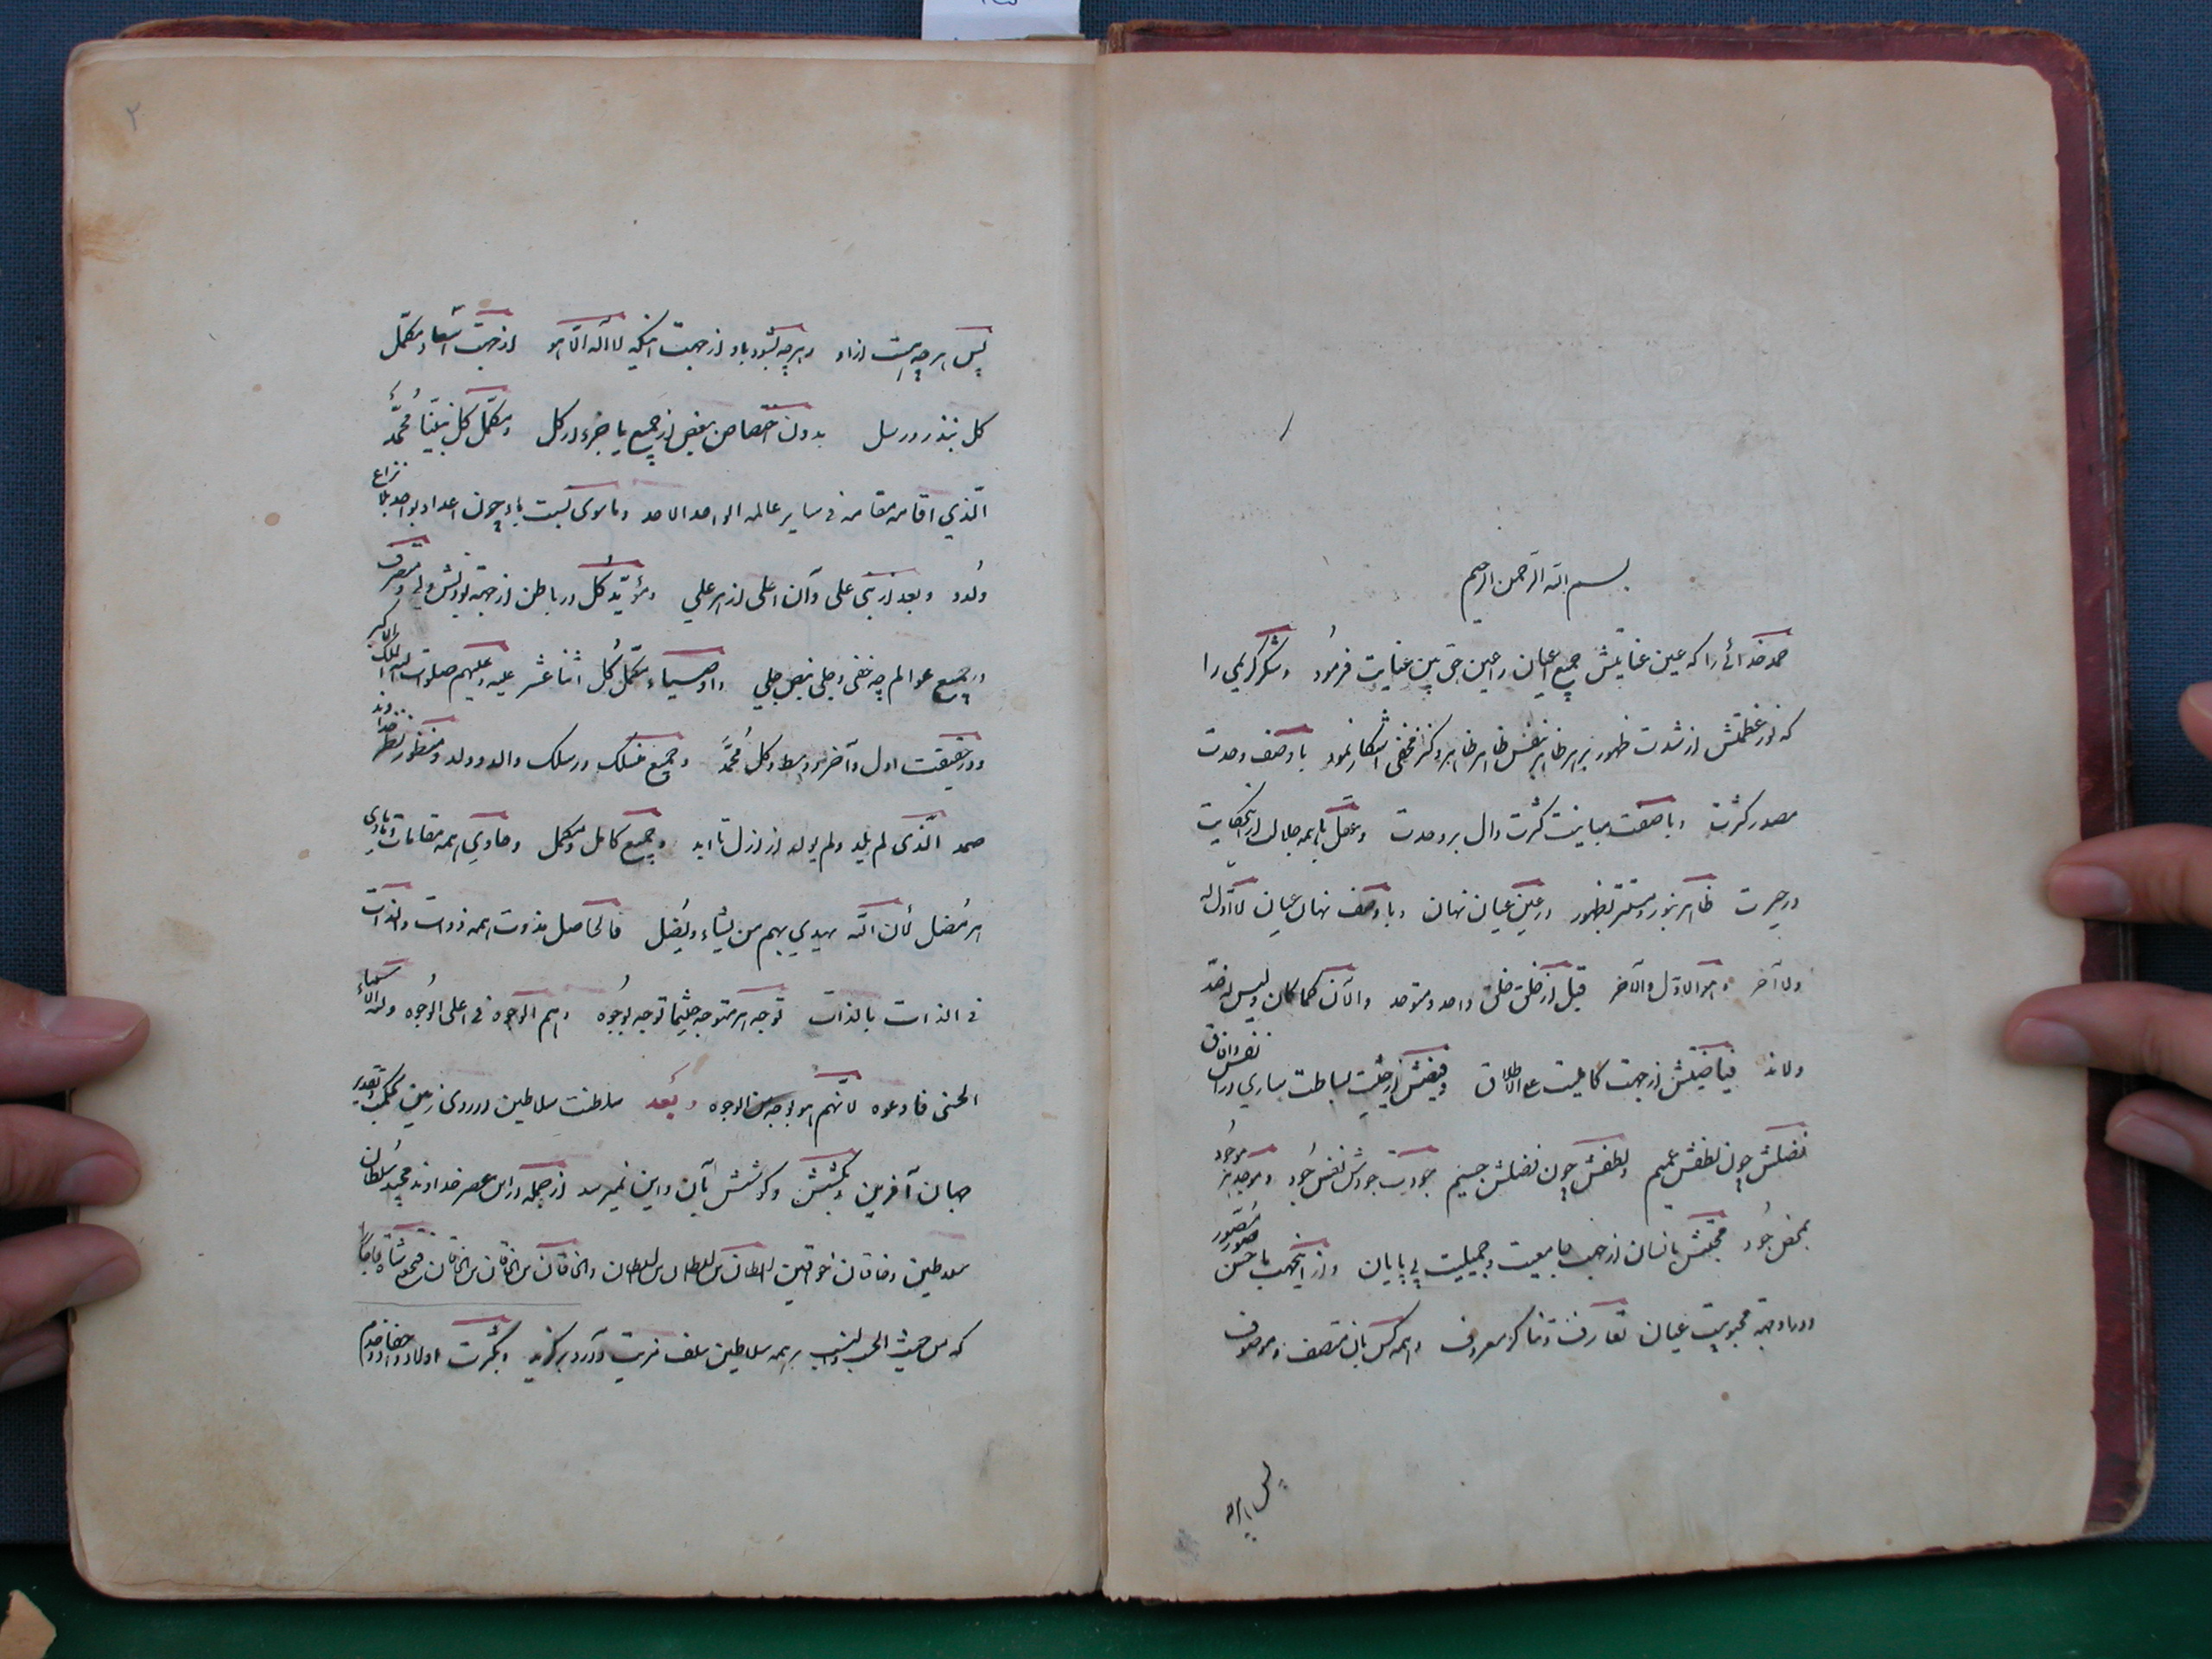 بسم الله الرحمن الرحیم
حمد خدائی را که عین عنایتش جمیع اعیان را عین حق بین عنایت فرمود و شکر کریمی را
که نور عظمتش از شدت ظهور بر هر ظاهر بنفس ظاهر ظاهر و کنز مخفی آشکار نمود با وصف وحدت
مصدر کثرت و با صفت مباینت کثرت دال بر وحدت و عقل با همه جلال از اینحکایت
در حیرت ظاهر بنور و مستتر بظهور در عین عیان نهان و با وصف نهان عیان لا اول له
ولا آخر و هو الاول والآخر قبل از خلق خلق واحد و متوحد والآن کما کان و لیس له ضد
ولا ند فیاضیتش از جهت کاملیت علی الاطلاق و فیضش از حیثیت بساطت ساری در انفس و آفاق
فضلش چون لطفش عمیم و لطفش چون فضلش جسیم جودیت جودش نفس جود و موجد هر موجود
بمحض جود محبتش بانسان از جهت جامعیت و جمیلیت بی پایان و از اینجهت باحسن صور مصور
و در مرتبه محبوبیت عیان تعارف و تناکر معروف و همه کس بآن متصف و موصوف
پس هرچه
۲
پس هرچه هست از او و هرچه بشود باو از جهت اینکه لا اله الا هو از جهت و مکمل
کل نذر و رسل بدون اختصاص بعض از جمیع یا جزء از کل و مکمل کل نبینا محمد
الذی اقامه مقامه فی سایر عالمه الواحد الاحد و ماسوی نسبت باو چون اعداد بواحد بلا نزاع
ولدد و بعد از نبی علی و آن اعلی از هر علی و مؤید کل در باطن از جهة بودنش ولی و متصرف
در جمیع عوالم چه خفی و جلی بنص جلی و اوصیاء مکمل کل اثنا عشر علیه و علیهم صلوات الله الملک الاکبر
و در حقیقت اول و آخر و اوسط و کل محمد و جمیع منسلک در سلک والد و ولد و منظور نظر خداوند
صمد الذی لم یلد ولم یولد از ازل تا ابد و جمیع کامل و مکمل و حاوی همه مقامات و هادی
هر مضل لان الله یهدی بهم من یشاء و یضل فالحاصل همه ذوات ولذات
فی الذات بالذات توجه هر متوجه حیثما توجه بوجوه و هم الوجوه فی اعلی الوجوه وله الاسماء
الحسنی فادعوه لانهم هو بوجه من الوجوه و بعد سلطنت سلاطین در روی زمین بحکمت و تقدیر
جهان آفرین و بکشش و کوشش آن و این نمیرسد از جمله در این عصر خداوند مجید سلطان
سلاطین و خاقان خواقین السلطان بن السلطان بن السلطان والخاقان بن الخاقان بن الخاقان فتحعلی شاه قاجار
که من حیث الحسب والنسب بر همه سلاطین سلف مزیت و آورد برگزید و بکثرت اولاد و احفاد و خدم